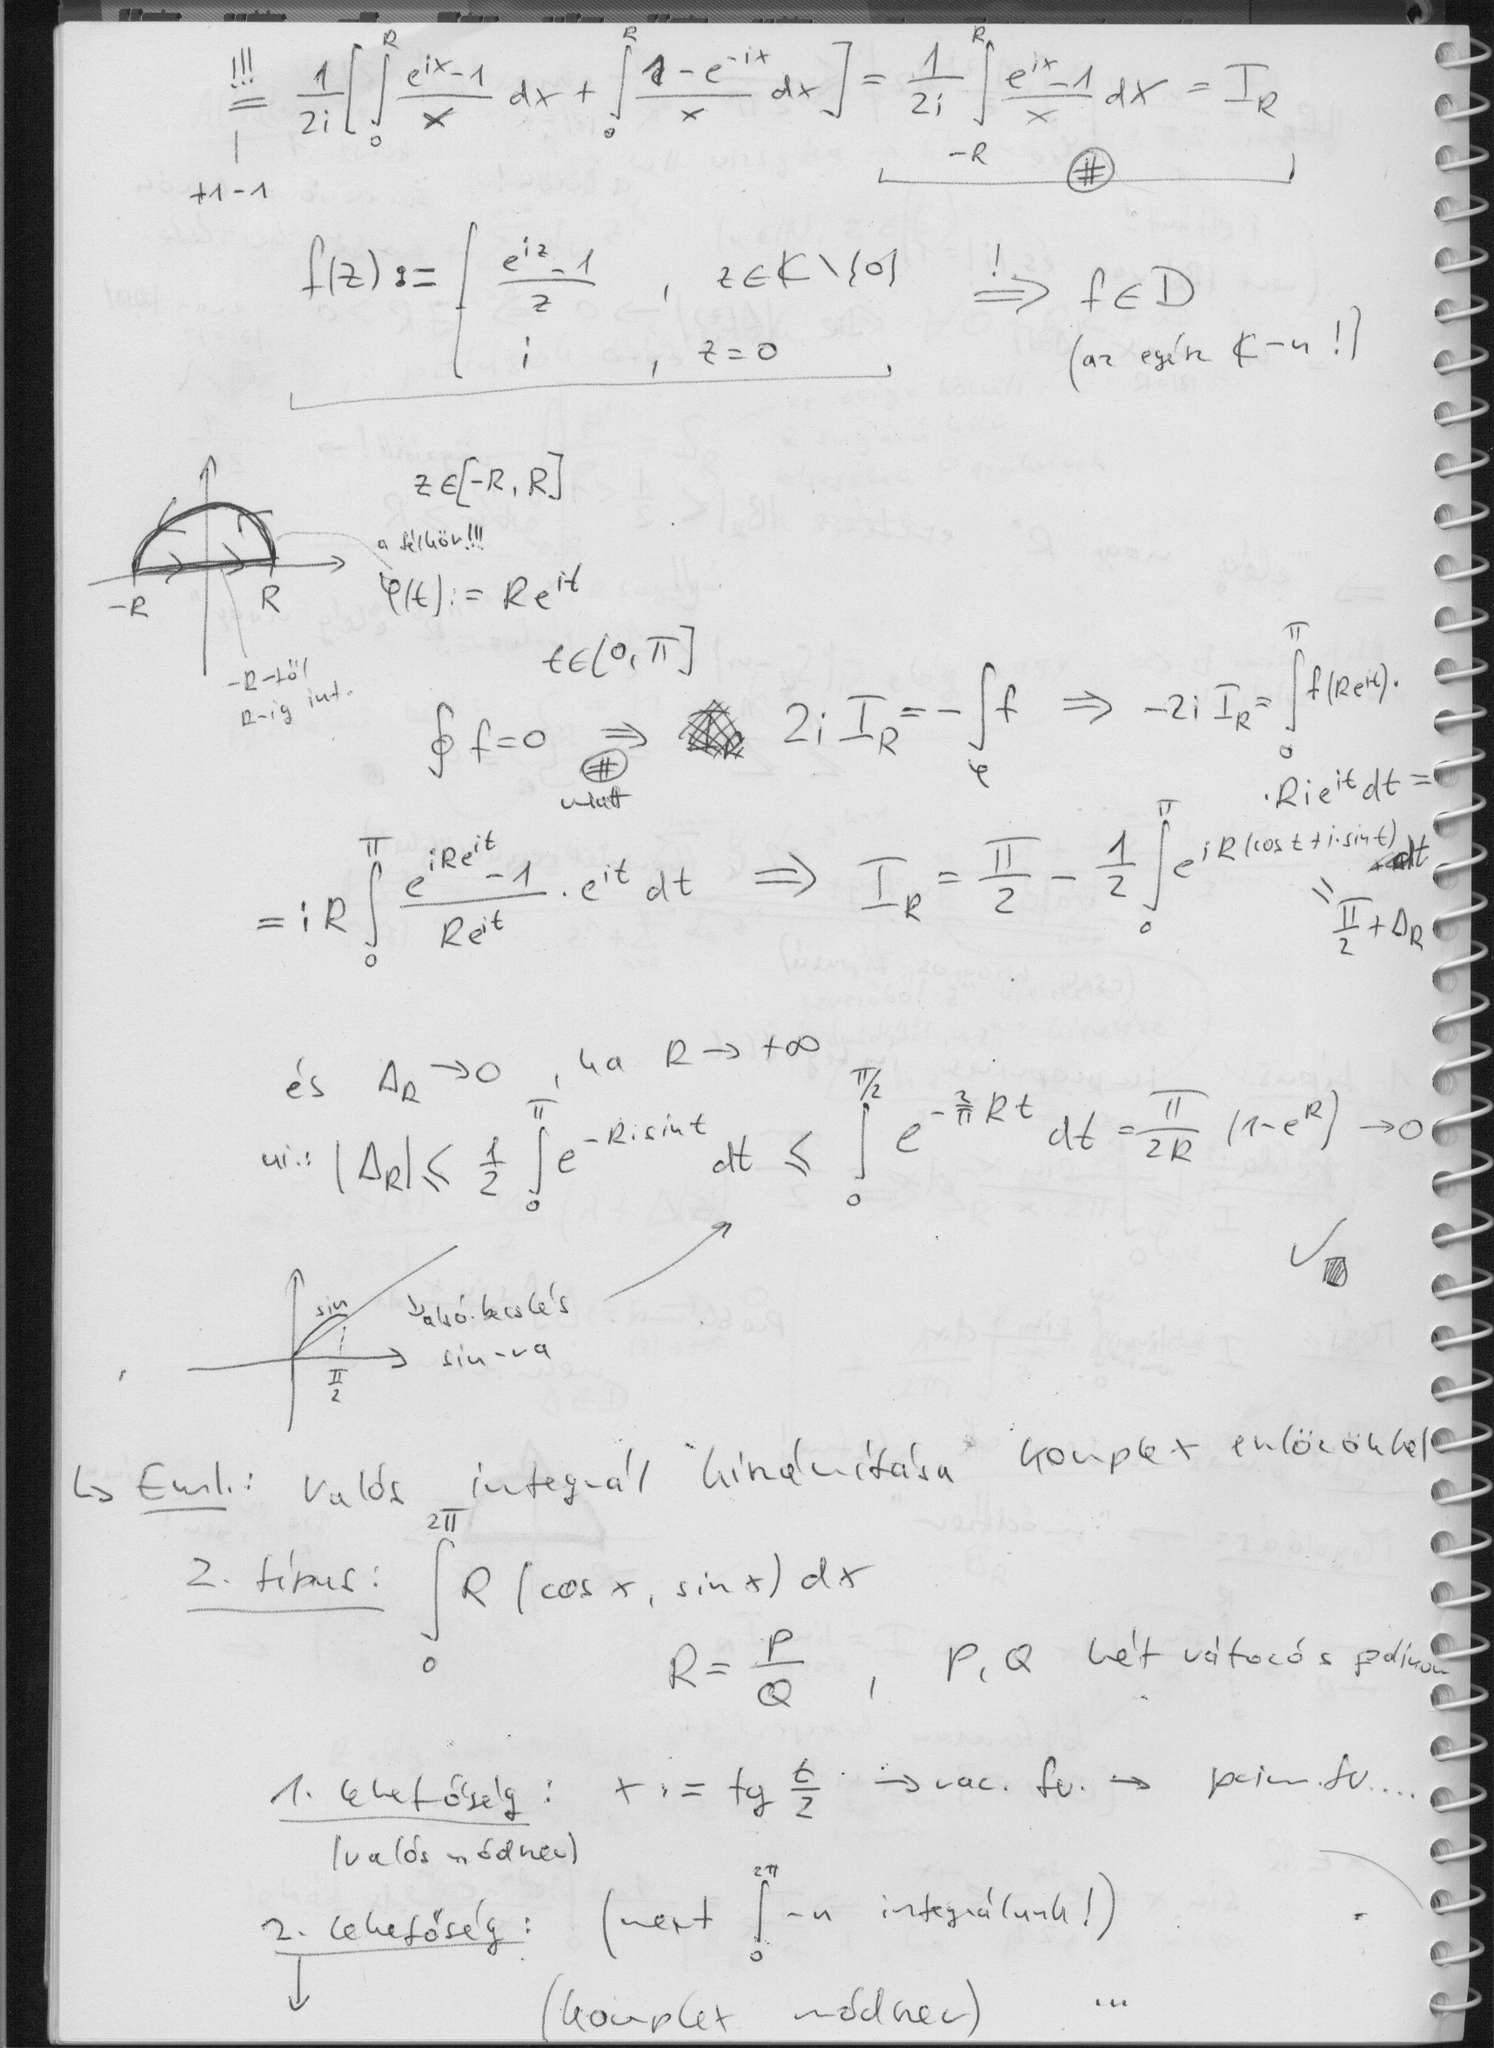 !!! = 1/2i [ ∫_0^R (e^{ix}-1)/x dx + ∫_0^R (1-e^{-ix})/x dx ] = 1/2i ∫_{-R}^R (e^{ix}-1)/x dx = I_R
+1-1
#
f(z) := { (e^{iz}-1)/z , z∈K\{0} ⟹! f∈D
i , z=0 (az egész K-n!)
z∈[-R, R]
a félkör!!!
-R R φ(t) := Re^{it}
t∈[0, π]
-R-től
R-ig int.
∮ f=0 ⟹ # miatt 2i I_R = -∫_φ f ⟹ -2i I_R = ∫_0^π f(Re^{it}).
.Rie^{it} dt =
= iR ∫_0^π (e^{iRe^{it}}-1)/(Re^{it}) . e^{it} dt ⟹ I_R = π/2 - 1/2 ∫_0^π e^{iR(cos t+i.sin t)} dt
= π/2 + Δ_R
és Δ_R → 0 , ha R → +∞
ui.: |Δ_R| ≤ 1/2 ∫_0^π e^{-R.sin t} dt ≤ ∫_0^{π/2} e^{-2/π Rt} dt = π/2R (1-e^R) → 0
✓
sin alsó.becslés
π/2 sin-ra
↳ Eml.: valós integrál kiszámítása komplex eszközökkel
2. típus: ∫_0^{2π} R (cos x, sin x) dx
R = P/Q , P, Q két változós polinom
1. lehetőség: x := tg t/2 → rac. fv. → prim.fv....
(valós módszer)
2. lehetőség: (mert ∫_0^{2π} -n integrálunk!)
(komplex módszer) ...